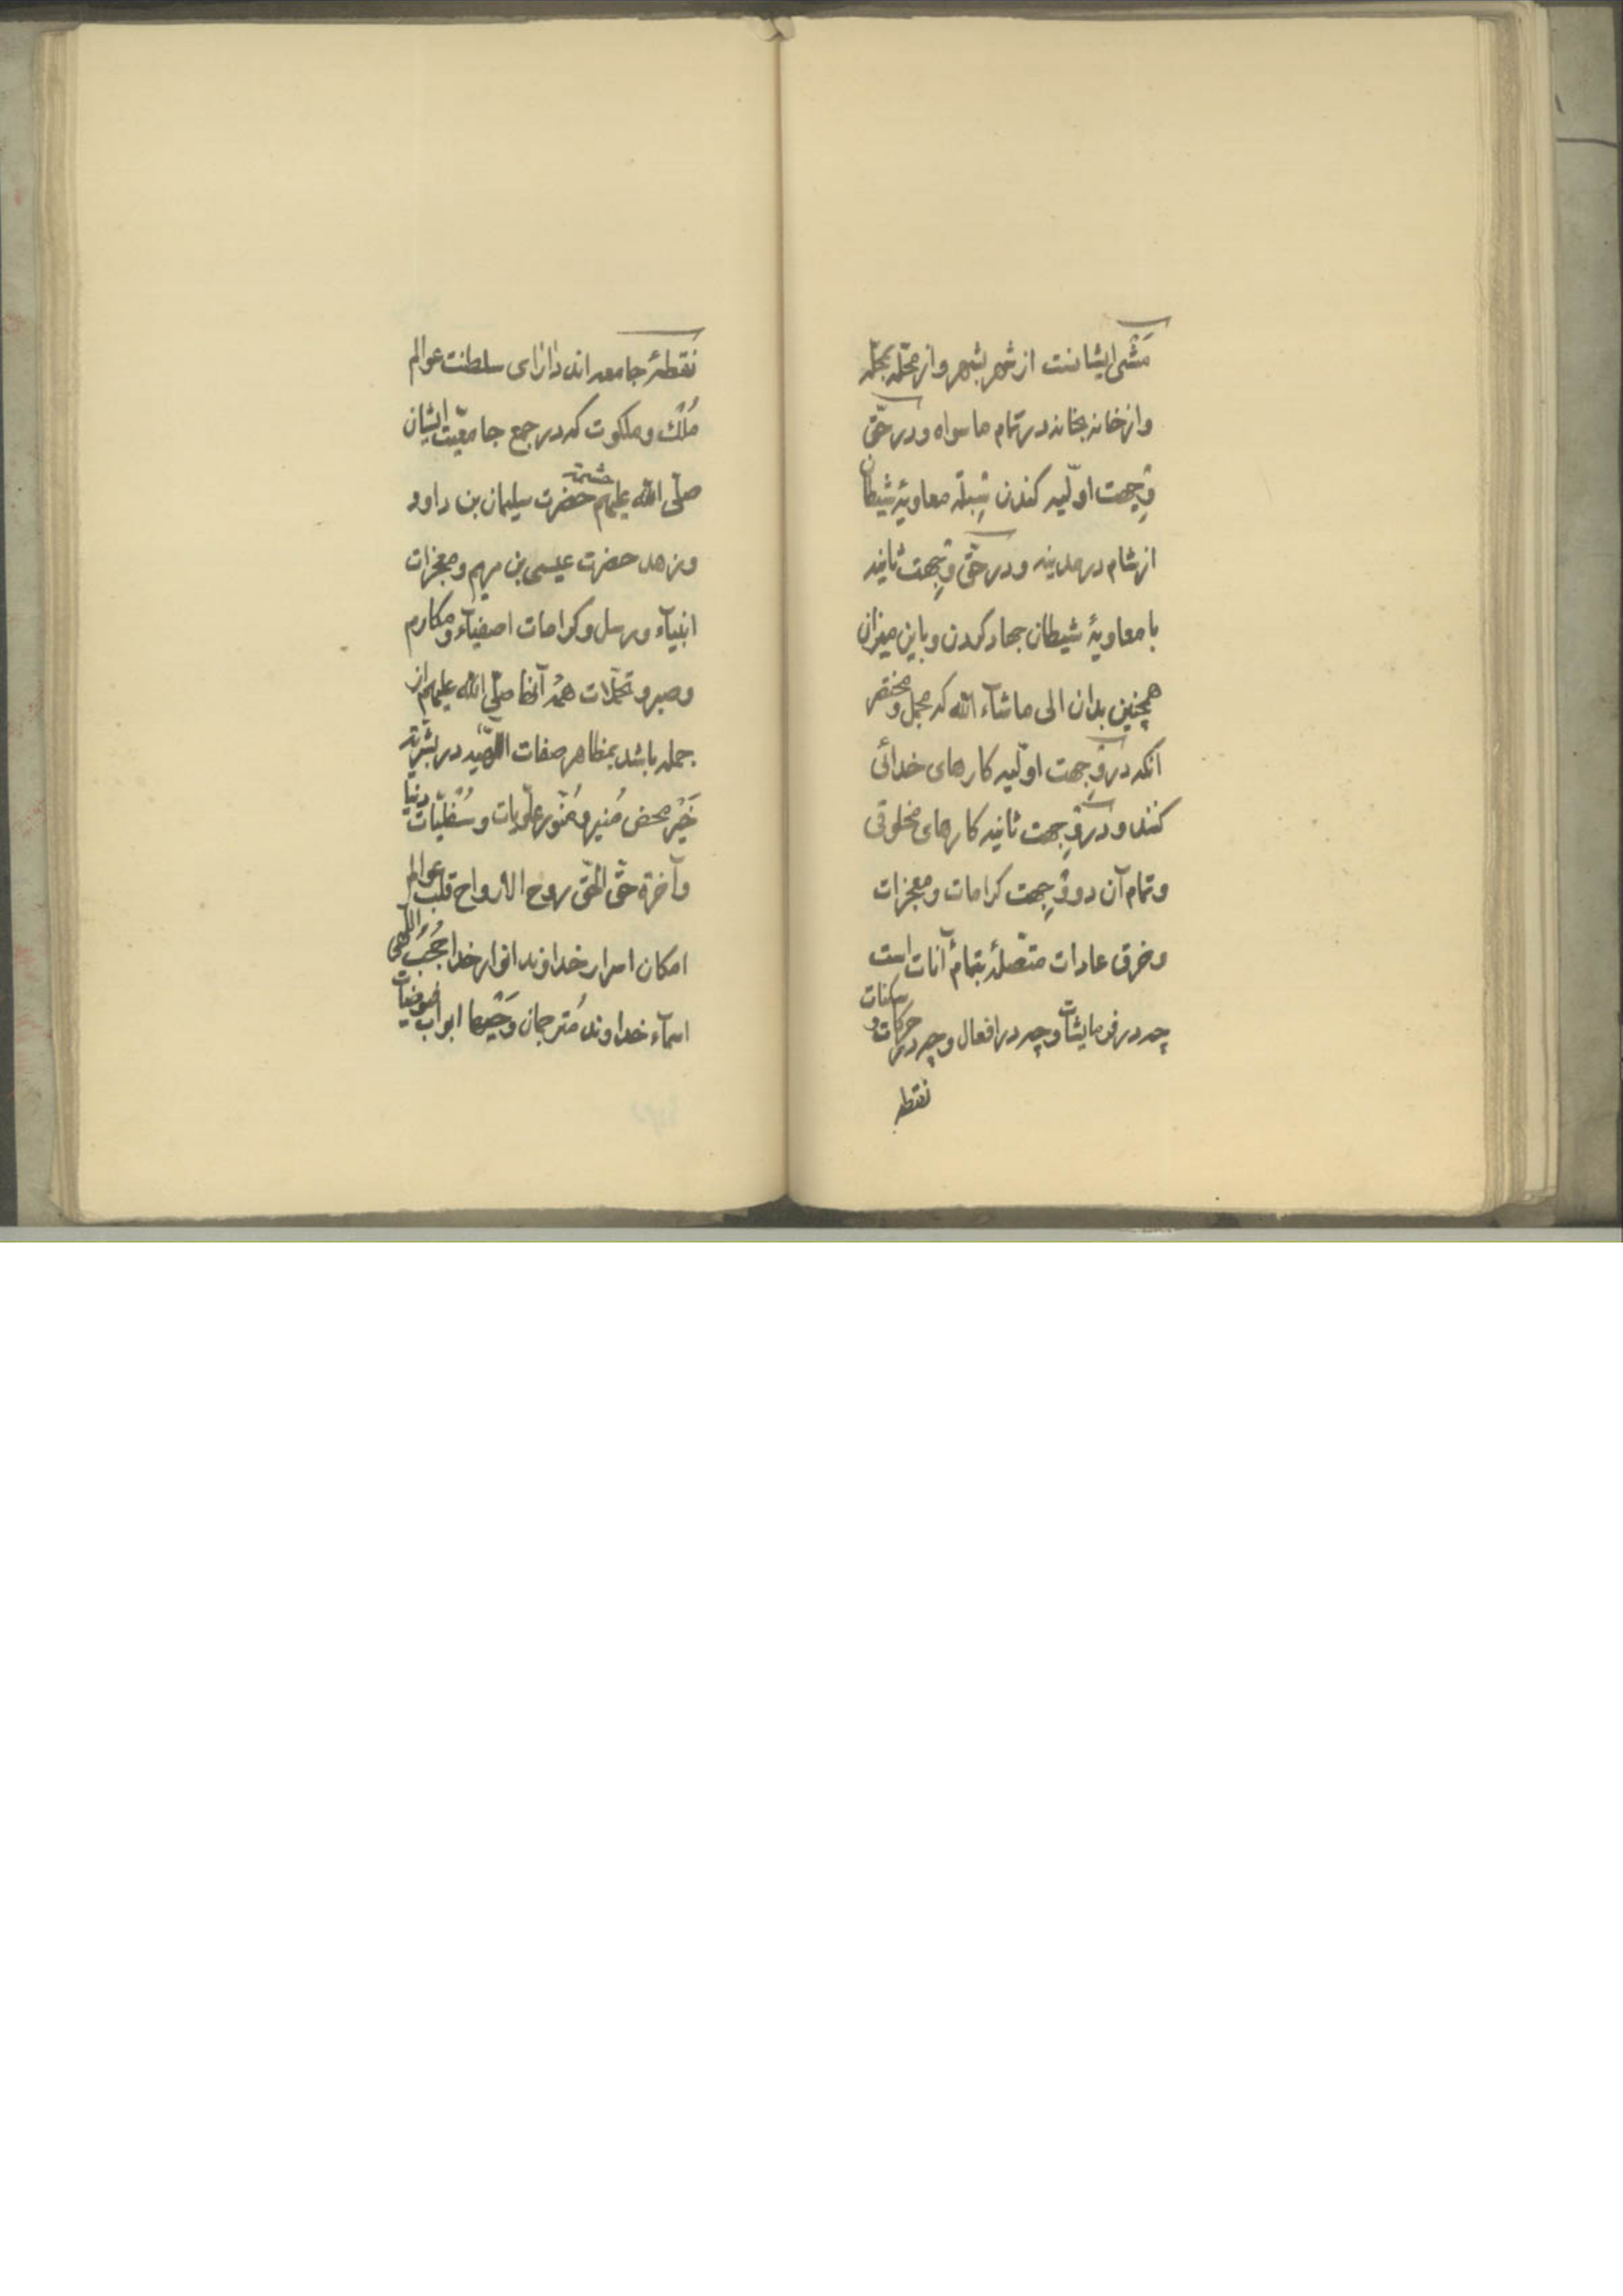 مَشی ایشانست از شهر بشهر و از محلّه بمحلّه
و از خانه بخانه در تمام ماسواه و در حقّ
وِجهت اوّلیه کندن سِبلهٔ معاویهٔ شیطان
از شام در مدینه و در حقّ وِجهت ثانیه
با معاویهٔ شیطان جهاد کردن و باین میزان
همچنین بدان الی ماشآء الله که مجمل و مختصر
آنکه در وِجهت اوّلیه کارهای خدائی
کنند و در وِجهت ثانیه کارهای مخلوقی
و تمام آن دو وِجهت کرامات و معجزات
و خرق عادات متّصلهٔ بتمام آنات است
چه در فرمایشات و چه در افعال و چه در حرکات و سکنات
نقطه
نقطهٔ جامعه‌اند دارای سلطنت عوالم
مُلک و ملکوت که در جمع جامعیّت ایشان
صلّی الله علیهم حشمة حضرت سلیمان بن داود
و زهد حضرت عیسی بن مریم و معجزات
انبیآء و رسل و کرامات اصفیآء و مکارم
و صبر و تحمّلات همهٔ آنها صلّی الله علیهم از
جمله باشد بمظاهر صفات الٰهیّه در بشریّة
خَیر محض مُنیر و مُنوّر علویات و سُفلیّات دنیا
و آخرة حقّ الحقّ روح الارواح قلب عوالم
امکان اسرار خداوند انوار خدا حُجُب و اللّٰهی
اسمآء خداوند مُترجمان وَحیها ابواب فیوضیات